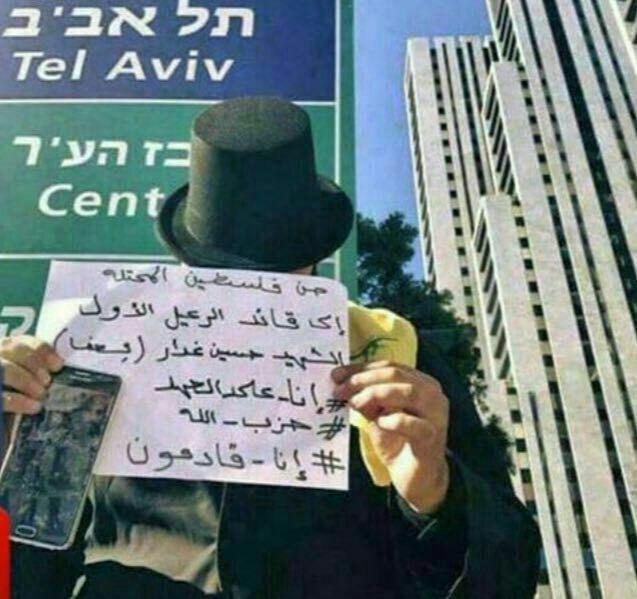 תל אביב
Tel Aviv
כז הע'ר
Cent
من فلسطين المحتله
إلى قائد الرعيل الأول
الشهيد حسين غدار
#إنا_على_العهد
#حزب_الله
#إنا_قادمون